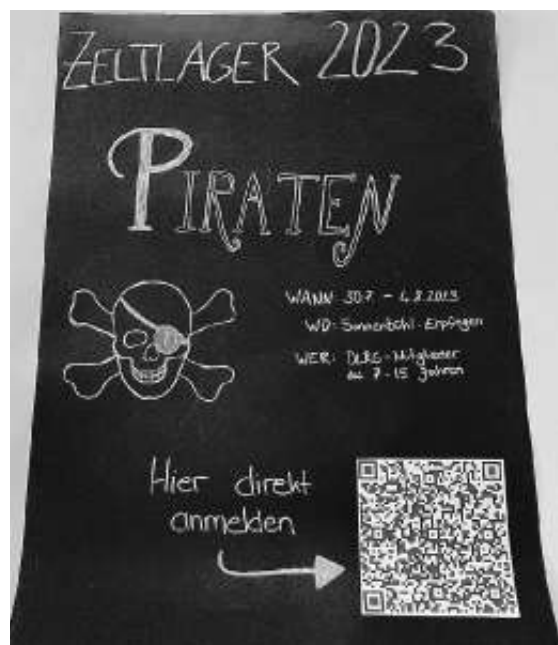 ZELTLAGER 2023
PIRATEN
WANN 30.7 - 4.8.2023
WO: Sonnenbühl - Erpfingen
WER: DLRG - Mitglieder
7 - 15 Jahren
Hier direkt
anmelden